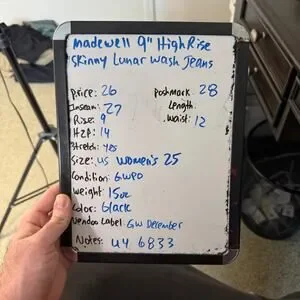 madewell 9" High Rise
Skinny Lunar Wash Jeans
Price: 26
Poshmark 28
Inseam: 27
Length:
Rise: 9
Waist: 12
Hip: 14
Stretch: yes
Size: US women's 25
Condition: GWPO
Weight 15oz
Color: black
Vendoo Label: GW December
Notes: U4 6833